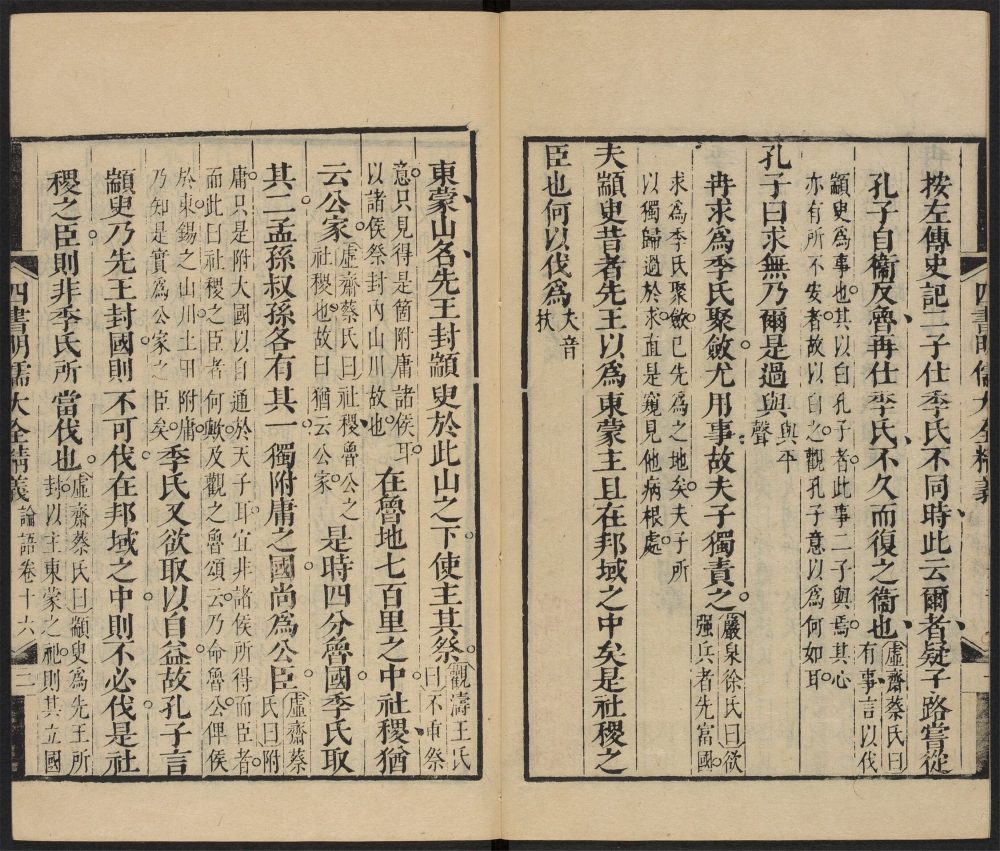 按左傳史記二子仕季氏不同時此云爾者疑子路嘗從
孔子自衞反魯再仕季氏不久而復之衞也虛齋蔡氏曰有事言以伐
顓臾爲事也其以白孔子者此事二子與焉其心
亦有所不安者故以白之觀孔子意以爲何如耳
孔子曰求無乃爾是過與與平聲
冉求爲季氏聚斂尤用事故夫子獨責之嚴泉徐氏曰欲強兵者先富國
求爲季氏聚斂已先爲之地矣夫子所
以獨歸過於求直是窺見他病根處
夫顓臾昔者先王以爲東蒙主且在邦域之中矣是社稷之
臣也何以伐爲夫音扶
東蒙山名先王封顓臾於此山之下使主其祭觀濤王氏曰不重祭
意只見得是箇附庸諸侯耳
以諸侯祭封內山川故也在魯地七百里之中社稷猶
云公家虛齋蔡氏曰社稷魯公之社稷也故曰猶云公家是時四分魯國季氏取
其二孟孫叔孫各有其一獨附庸之國尚爲公臣虛齋蔡氏曰附
庸只是附大國以自通於天子耳宜非諸侯所得而臣者
而此曰社稷之臣者何歟及觀之魯頌云乃命魯公俾侯
於東錫之山川土田附庸
乃知是實爲公家之臣矣季氏又欲取以自益故孔子言
顓臾乃先王封國則不可伐在邦域之中則不必伐是社
稷之臣則非季氏所當伐也虛齋蔡氏曰顓臾爲先王所封以主東蒙之祀則其立國
四書明儒大全精義 論語卷十六 二